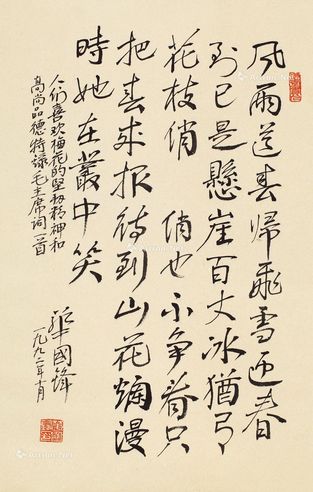 风雨送春归飛雪迎春
到已是懸崖百丈冰猶有
花枝俏 俏也不争春只
把春来报待到山花爛漫
時她在叢中笑
人们喜欢梅花的坚韧精神和
高尚品德特录毛主席词一首
華國鋒
一九九二年十月